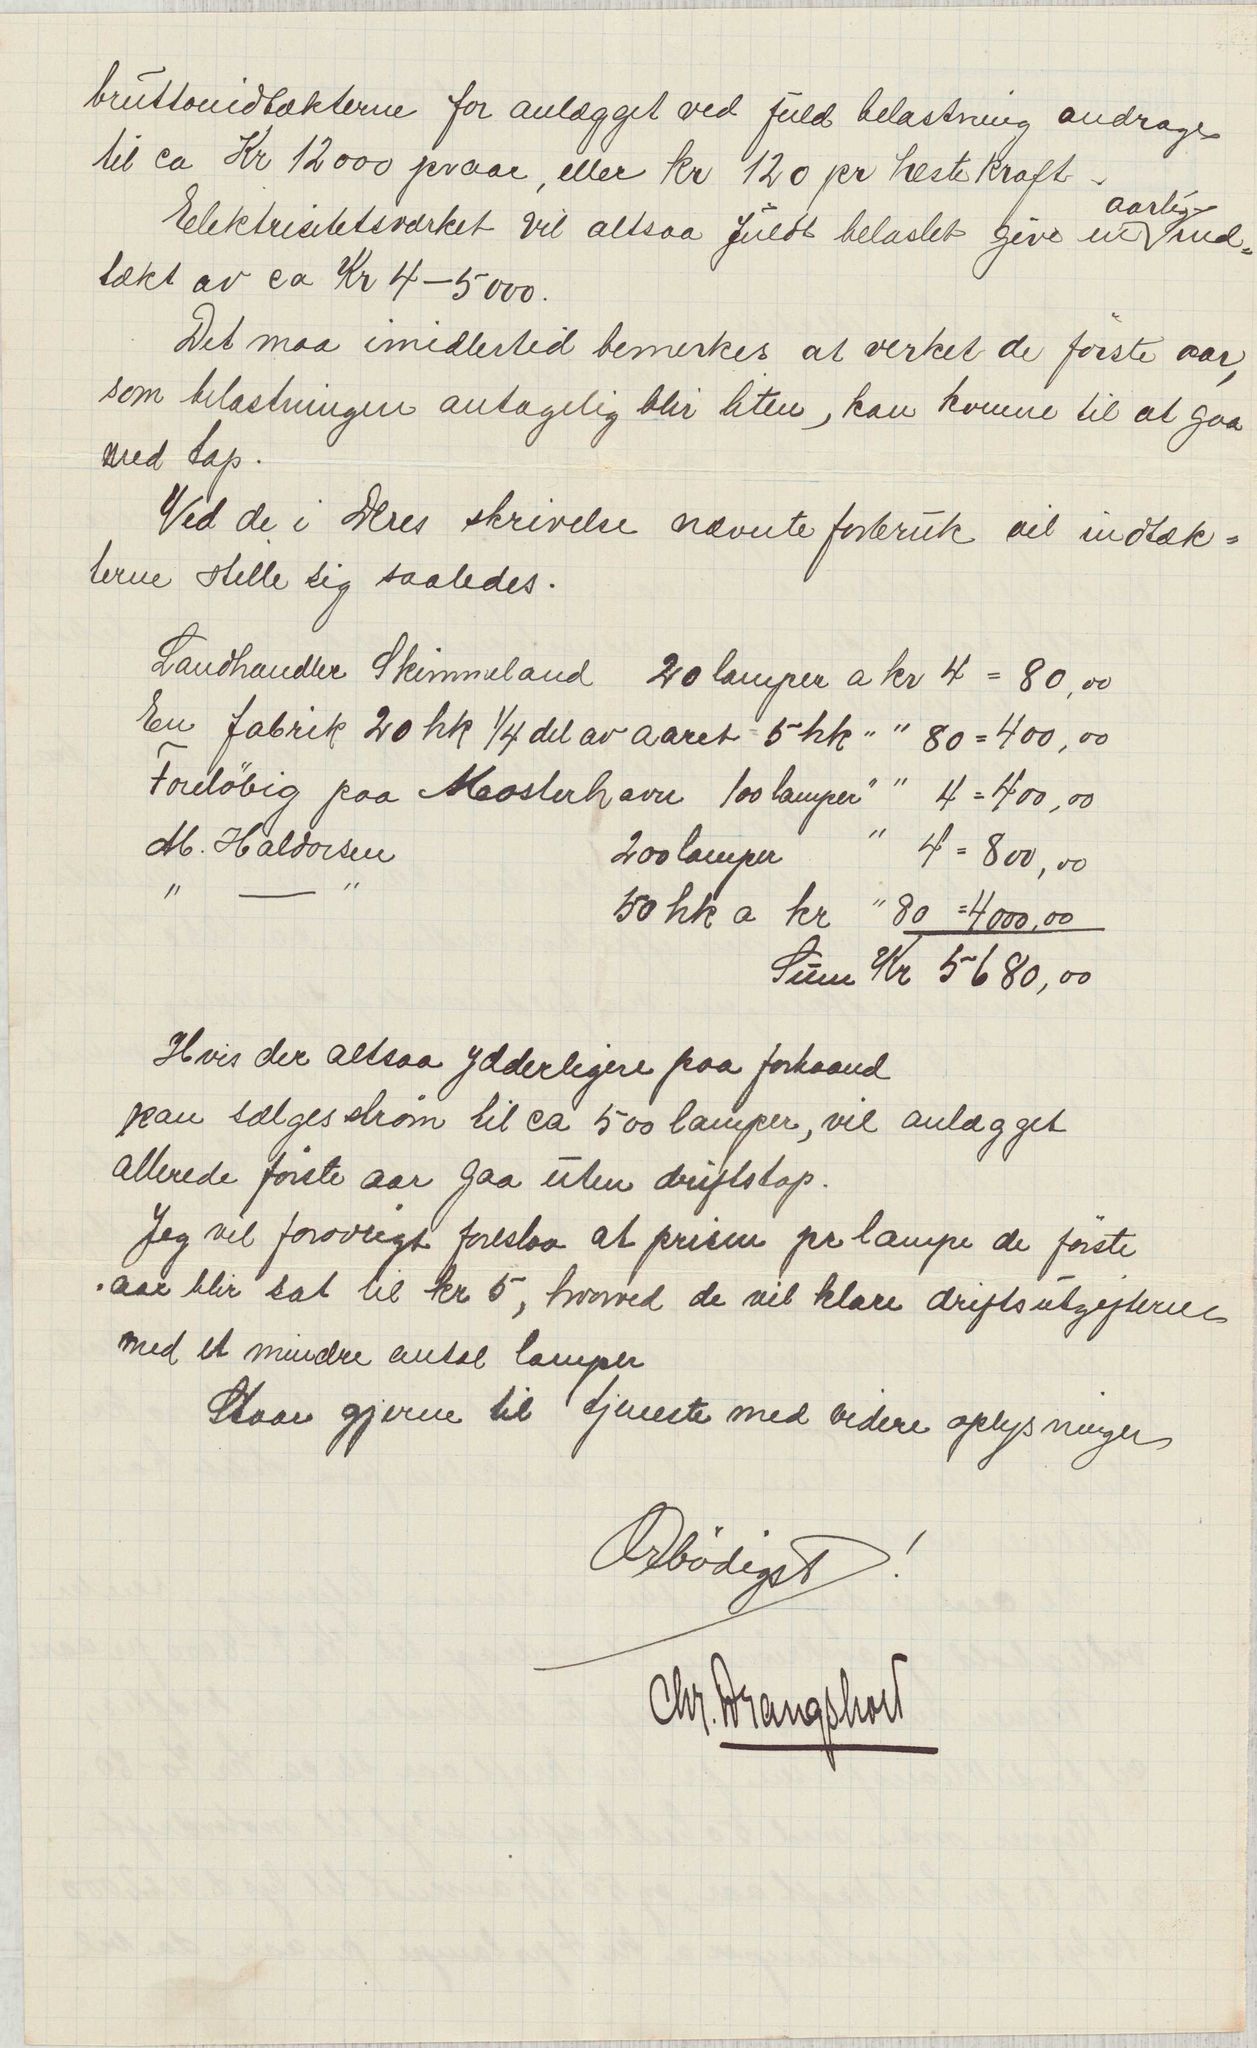 bruttoindtækterne for anlægget ved fuld belastning andrage
til ca Kr 12000 pr aar, eller kr 120 pr hestekraft.
Elektricitetsværket vil altsaa fuldt belastet give en aarlig ind=
tækt av ca Kr 4–5000.
Det maa imidlertid bemerkes at verket de første aar,
som belastningen antagelig blir liten, kan komme til at gaa
med tap.
Ved de i Deres skrivelse nævnte forbruk vil indtæk=
terne stelle sig saaledes.
Landhandler Skimmeland 20 lamper a kr 4 = 80,00
En fabrik 20 hk 1/4 del av aaret = 5 hk " " 80 = 400,00
Foreløbig paa Mosterhavn 100 lamper " " 4 = 400,00
M. Haldorsen 200 lamper " 4 = 800,00
" — " 50 hk a kr " 80 = 4000,00
Sum Kr 5680,00
Hvis der altsaa ydderligere paa forhaand
kan sælges strøm til ca 500 lamper, vil anlægget
allerede første aar gaa uten driftstap.
Jeg vil forøvrigt foreslaa at prisen pr lampe de første
aar blir sat til kr 5, hvorved de vil klare driftsutgifterne
med et mindre antal lamper
Staar gjerne til tjeneste med videre oplysninger
Ærbødigst!
Chr. Drangsholt